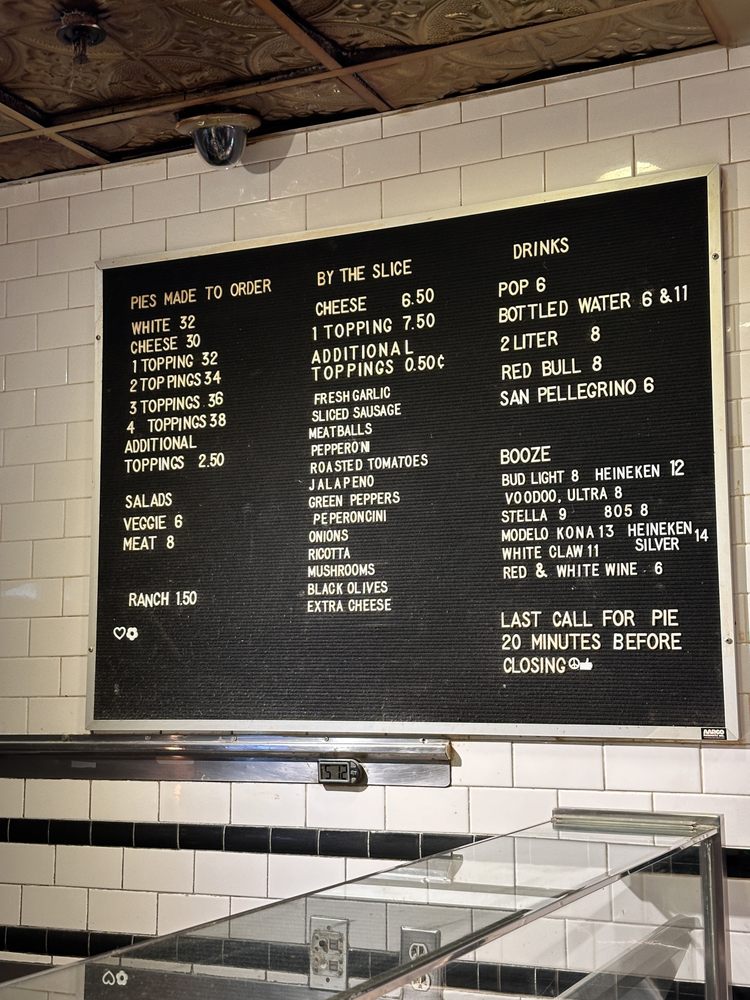 PIES MADE TO ORDER
WHITE 32
CHEESE 30
1 TOPPING 32
2 TOPPINGS 34
3 TOPPINGS 36
4 TOPPINGS 38
ADDITIONAL
TOPPINGS 2.50
SALADS
VEGGIE 6
MEAT 8
RANCH 1.50
BY THE SLICE
CHEESE 6.50
1 TOPPING 7.50
ADDITIONAL
TOPPINGS 0.50¢
FRESH GARLIC
SLICED SAUSAGE
MEATBALLS
PEPPERONI
ROASTED TOMATOES
JALAPENO
GREEN PEPPERS
PEPERONCINI
ONIONS
RICOTTA
MUSHROOMS
BLACK OLIVES
EXTRA CHEESE
DRINKS
POP 6
BOTTLED WATER 6 & 11
2 LITER 8
RED BULL 8
SAN PELLEGRINO 6
BOOZE
BUD LIGHT 8 HEINEKEN 12
VOODOO, ULTRA 8
STELLA 9 805 8
MODELO KONA 13 HEINEKEN SILVER 14
WHITE CLAW 11
RED & WHITE WINE 6
LAST CALL FOR PIE
20 MINUTES BEFORE
CLOSING
AARCO